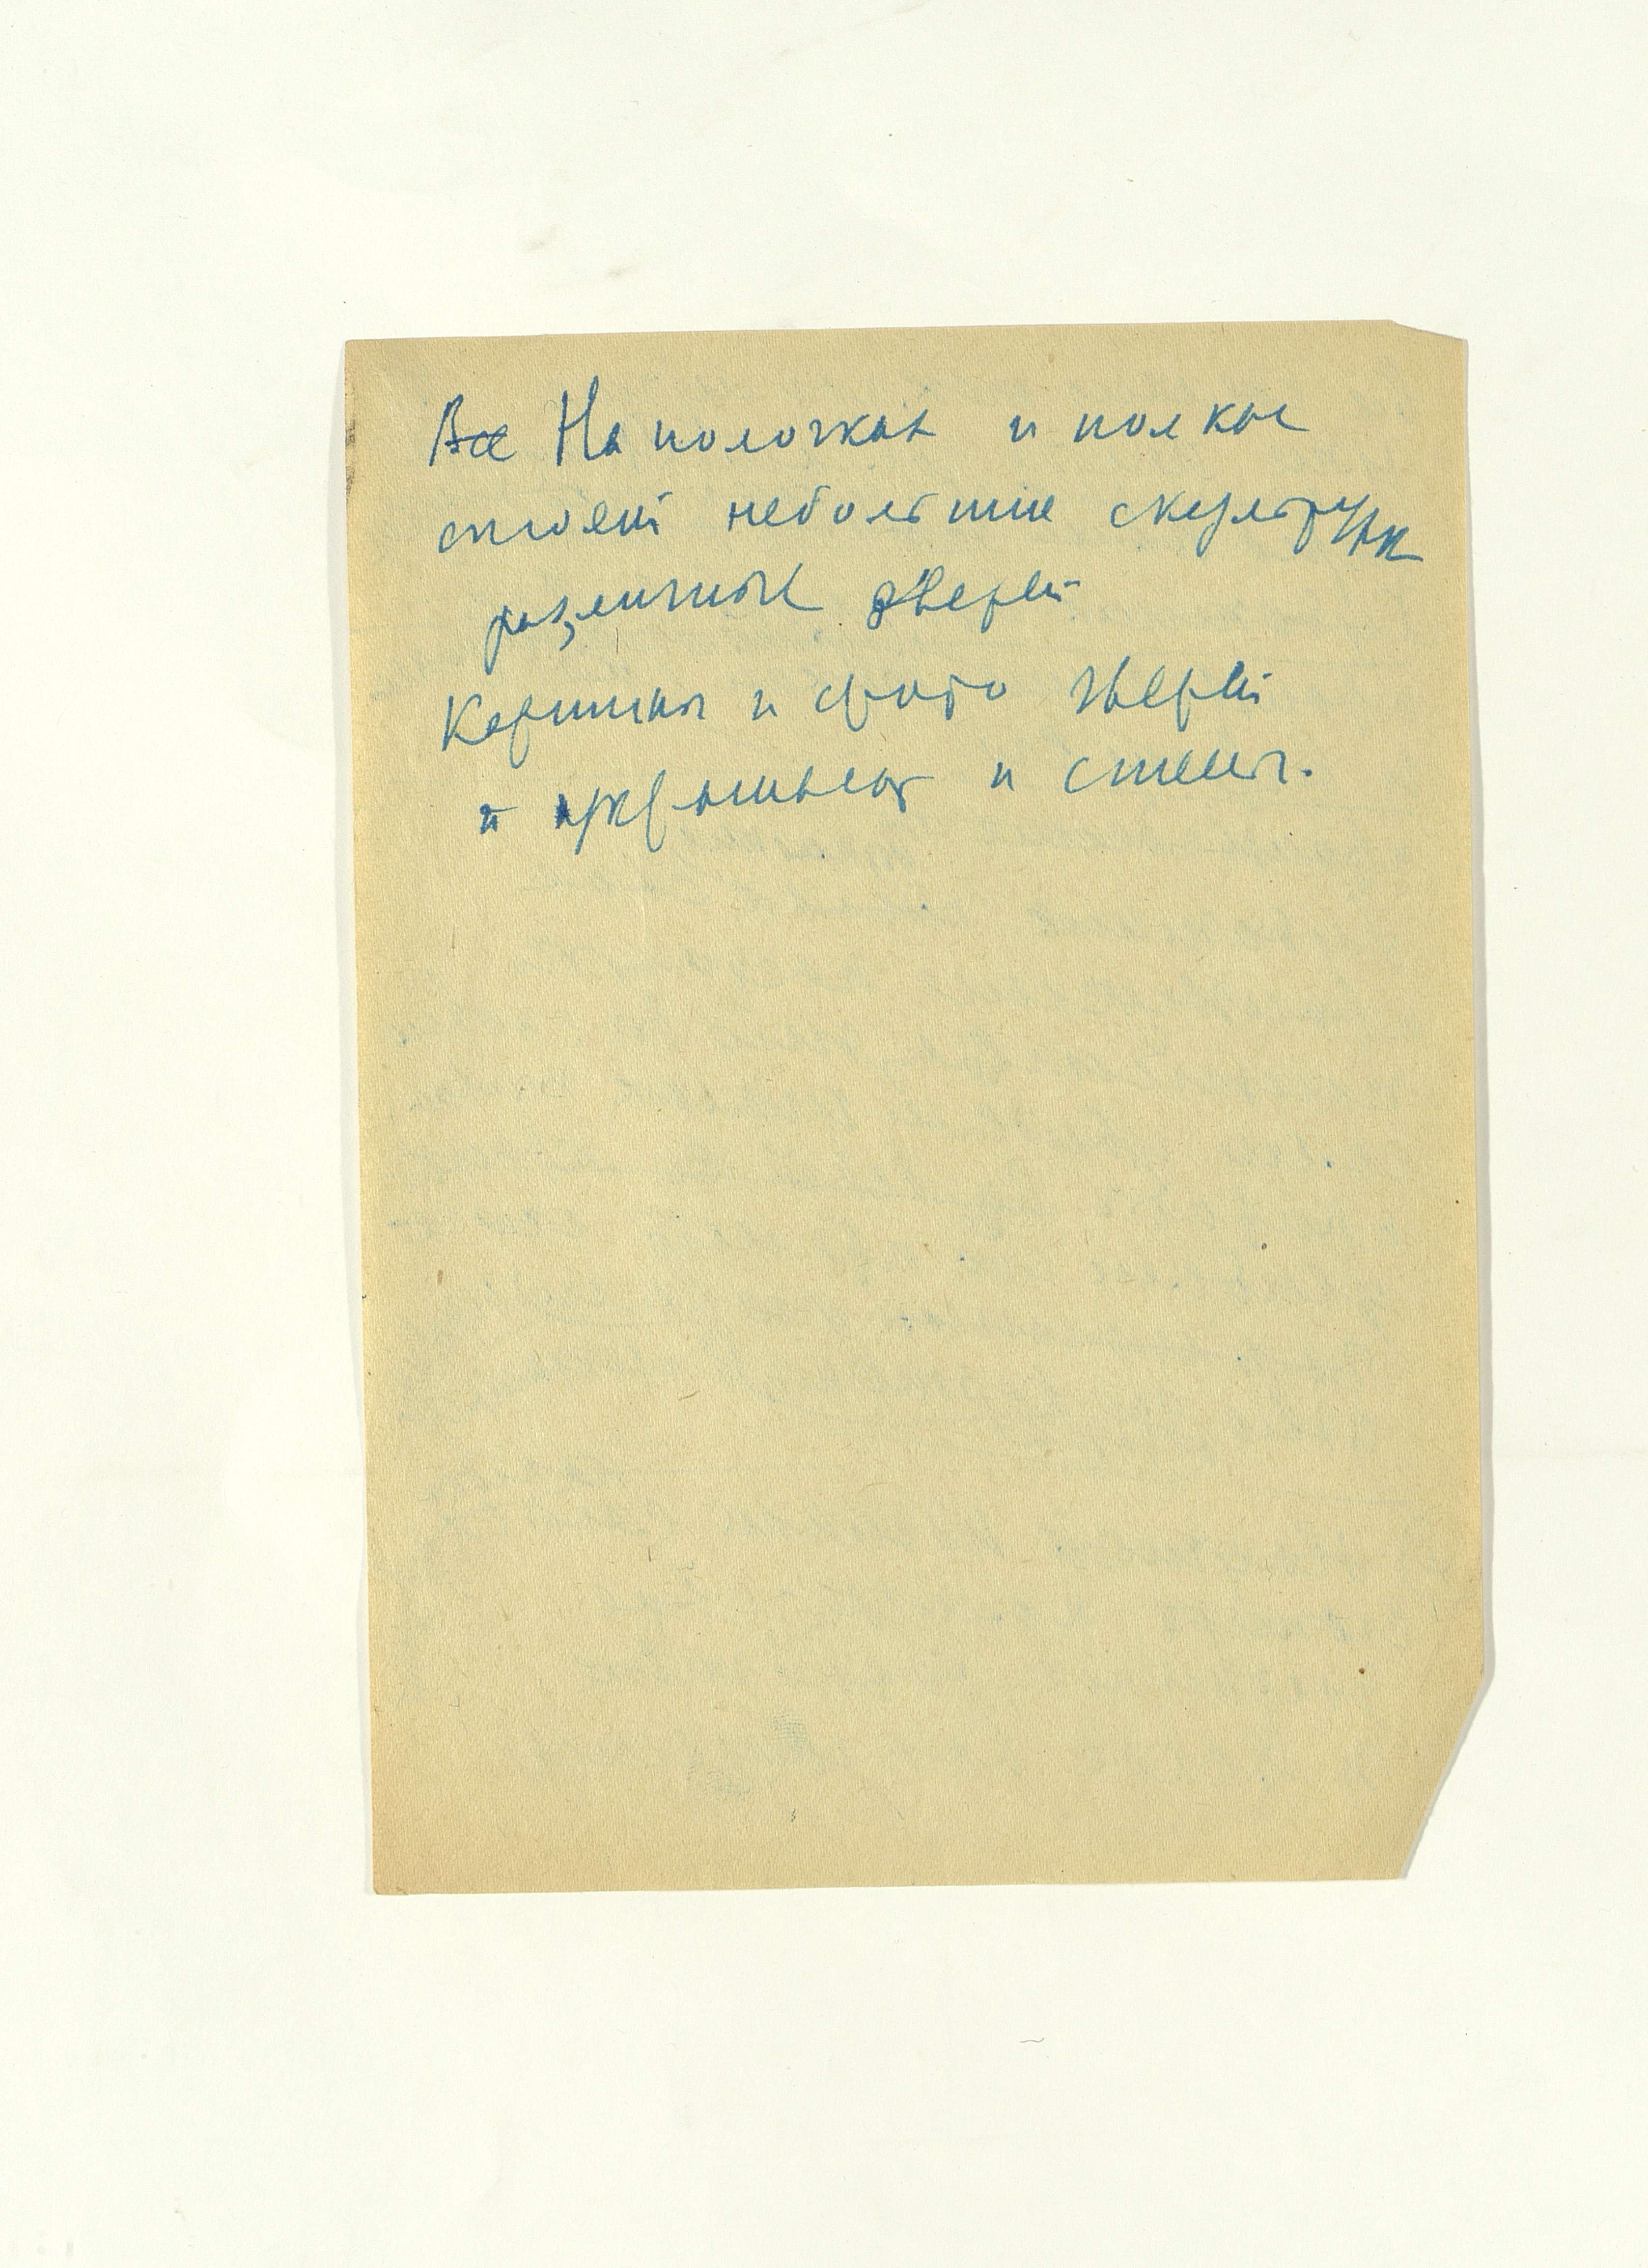 Все На полочках и полках
стоят небольшие скульптурки
различных зверей
Картины и фото зверей
и украшают и стены.